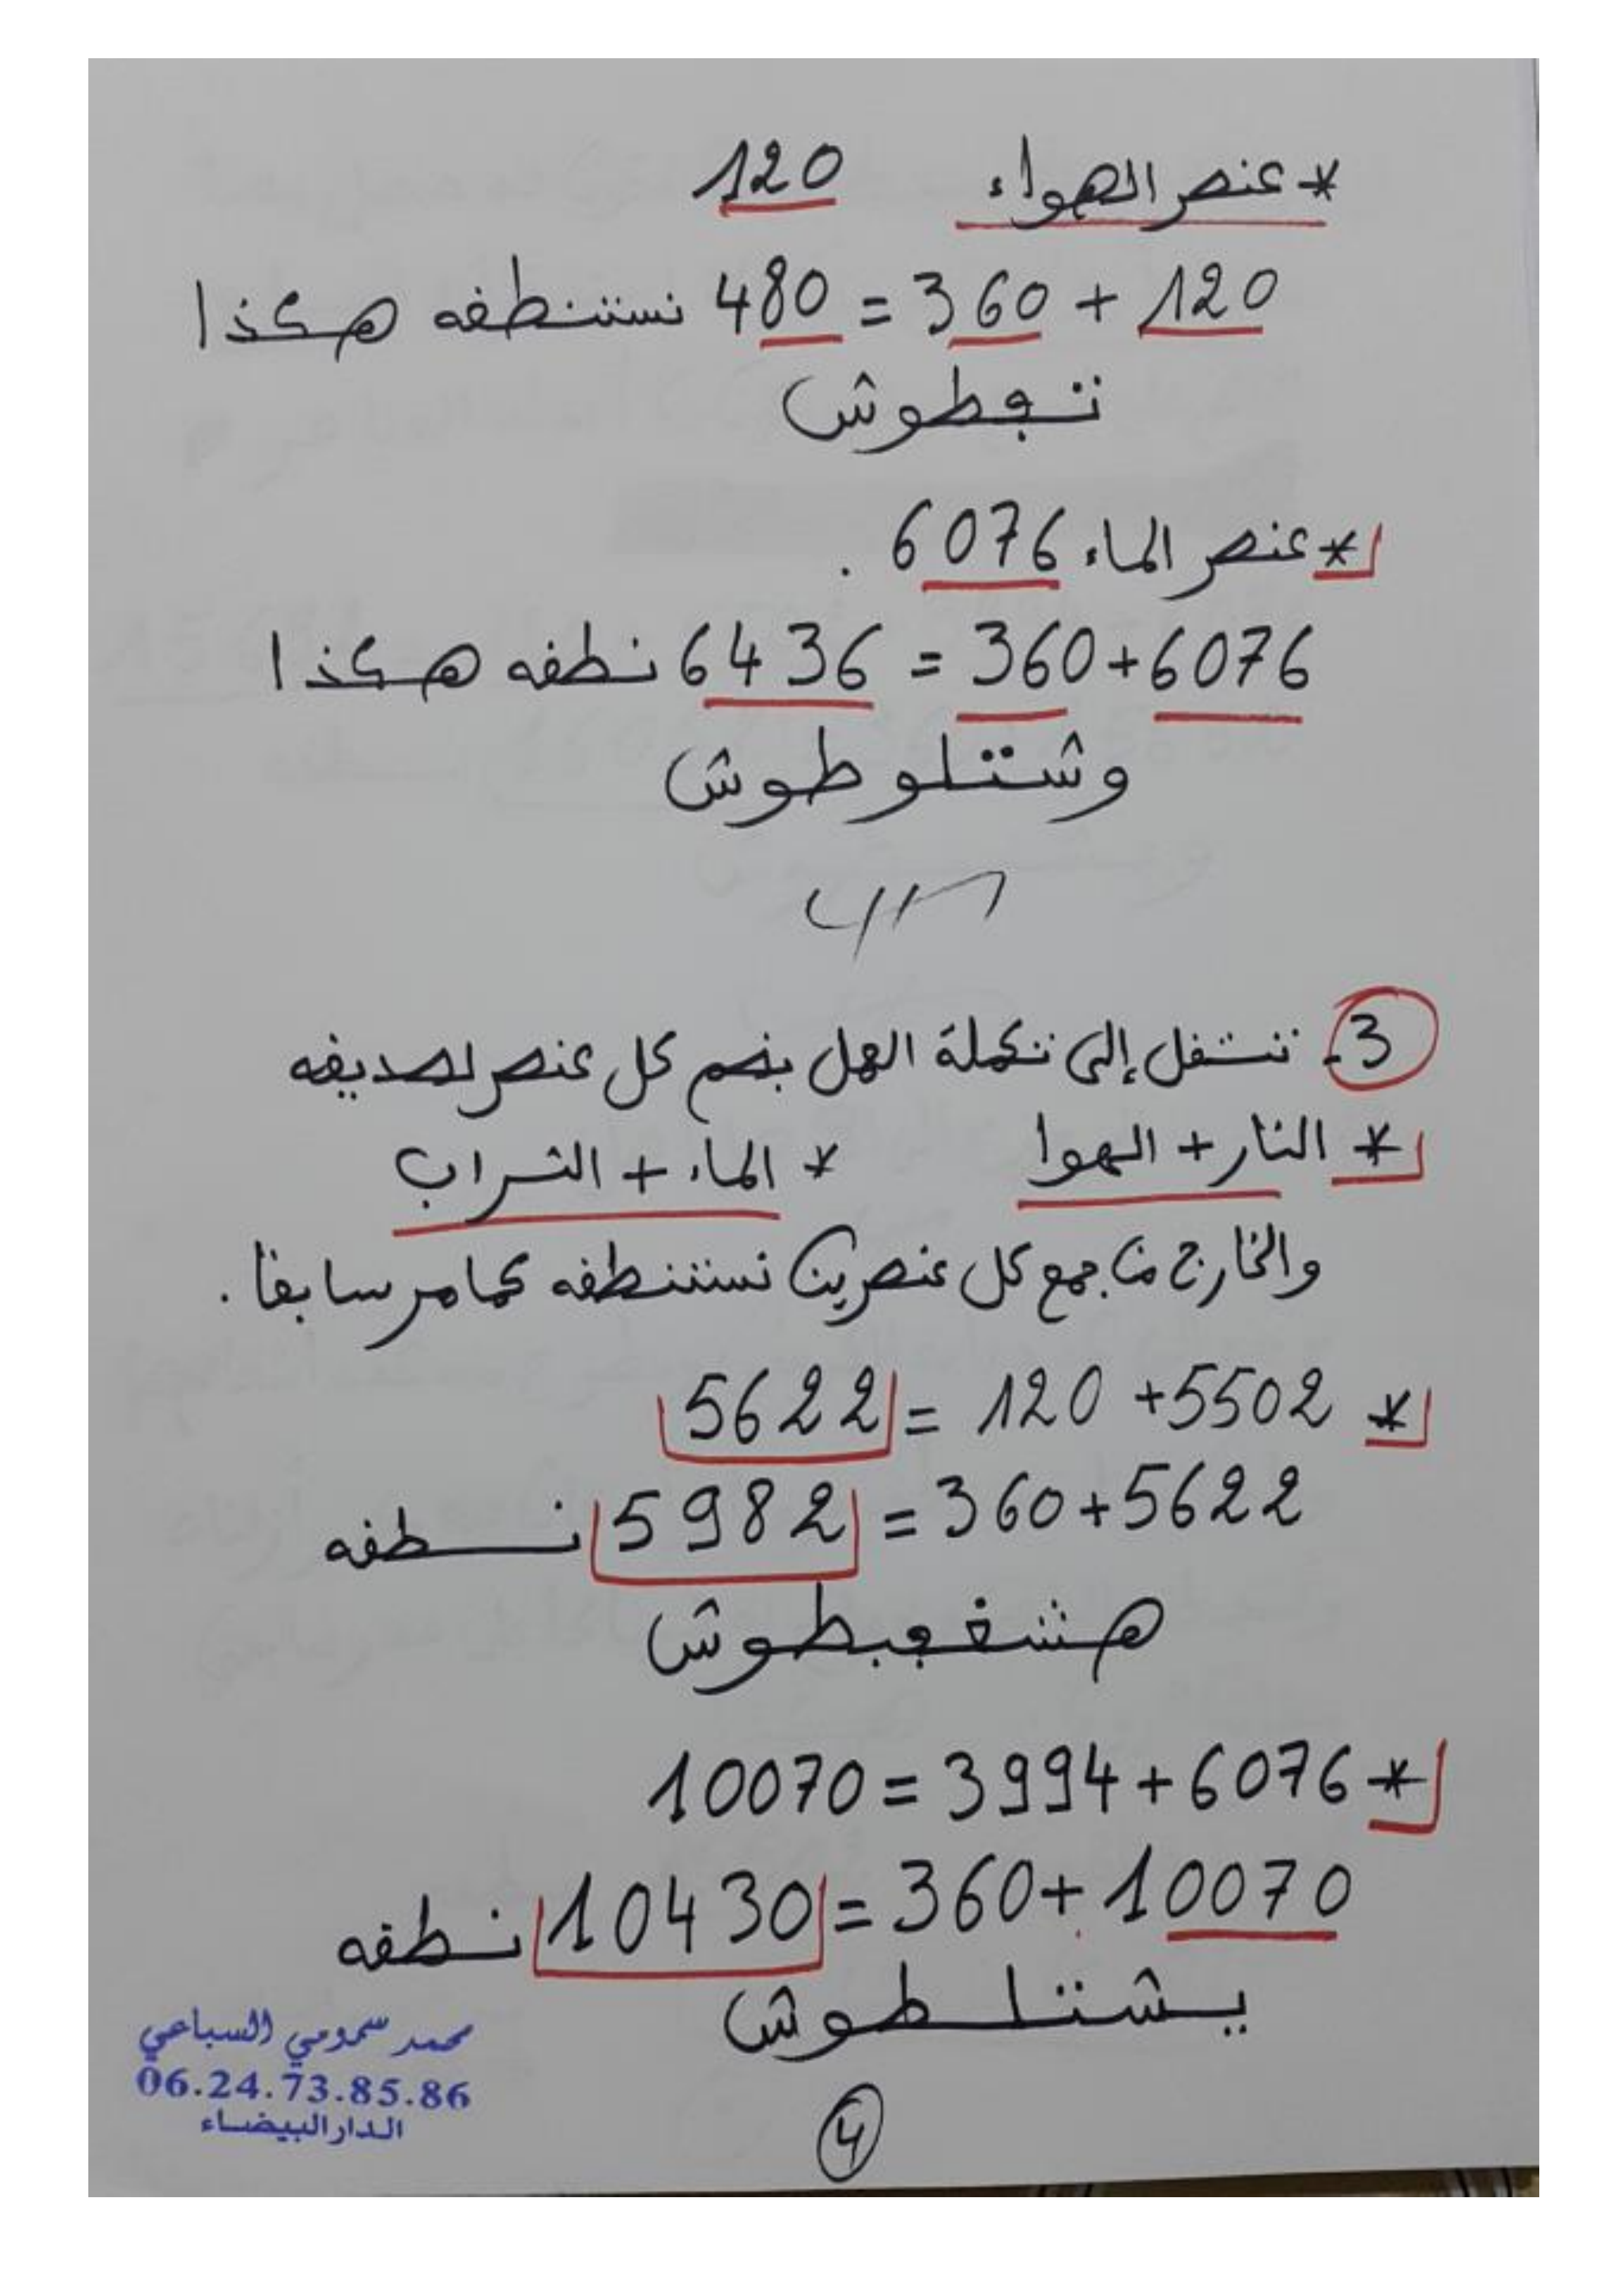 * عنصر الهواء 120
120 + 360 = 480 نستنطفه هكذا
تفطوش
* عنصر الماء 6076 .
6076+360 = 6436 نطفه هكذا
وشتلو طوش
3- ننتفل إلى تكملة العمل بضم كل عنصر لصديفه
* النار + الهوا * الماء + التراب
والخارج من جمع كل عنصرين نستنطفه كما مر سابفا .
* 5502+ 120 = 5622
5622+360 = 5982 نطفه
هشغبطوش
* 6076+3994=10070
10070+360=10430 نطفه
يشتلطوش
محمد سمومي السباعي
06.24.73.85.86
الدار البيضاء
4